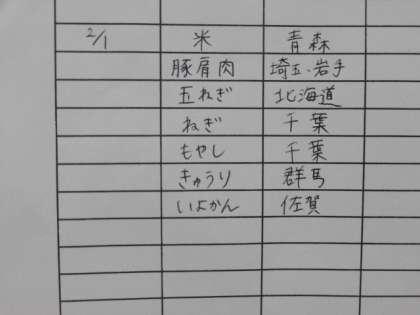 2/1 米 青森
豚肩肉 埼玉、岩手
玉ねぎ 北海道
ねぎ 千葉
もやし 千葉
きゅうり 群馬
いよかん 佐賀